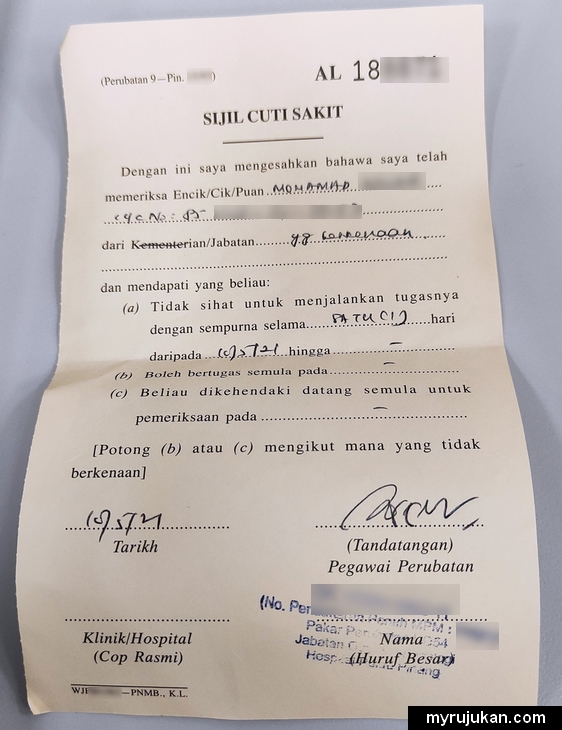 (Perubatan 9—Pin. )
AL 18
SIJIL CUTI SAKIT
Dengan ini saya mengesahkan bahawa saya telah
memeriksa Encik/Cik/Puan..MOHAMAD
dari Kementerian/Jabatan..........yg berkenaan
dan mendapati yang beliau:
(a) Tidak sihat untuk menjalankan tugasnya
dengan sempurna selama......SATU (1)....hari
daripada............hingga......–......
(b) Boleh bertugas semula pada......–......
(c) Beliau dikehendaki datang semula untuk
pemeriksaan pada ......–......
[Potong (b) atau (c) mengikut mana yang tidak
berkenaan]
Tarikh
(Tandatangan)
Pegawai Perubatan
(No. MPM :
Pakar
Jabatan
Hosp Pinang
Klinik/Hospital
(Cop Rasmi)
Nama
(Huruf Besar)
—PNMB., K.L.
myrujukan.com